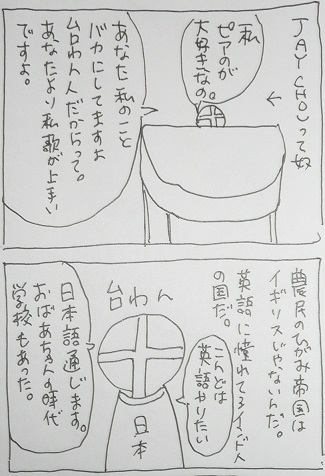 JAY CHOUって奴
私
ピアのが
大好きなの。
あなた私のこと
バカにしてますよ
台わん人だからって。
あなたより私歌が上手い
ですよ。
農民のひがみ帝国は
イギリスじゃないんだ。
英語に憧れてるインド人
の国だ。
こんどは
英語やりたい
台わん
日本
日本語通じます。
おばあちゃんの時代
学校もあった。